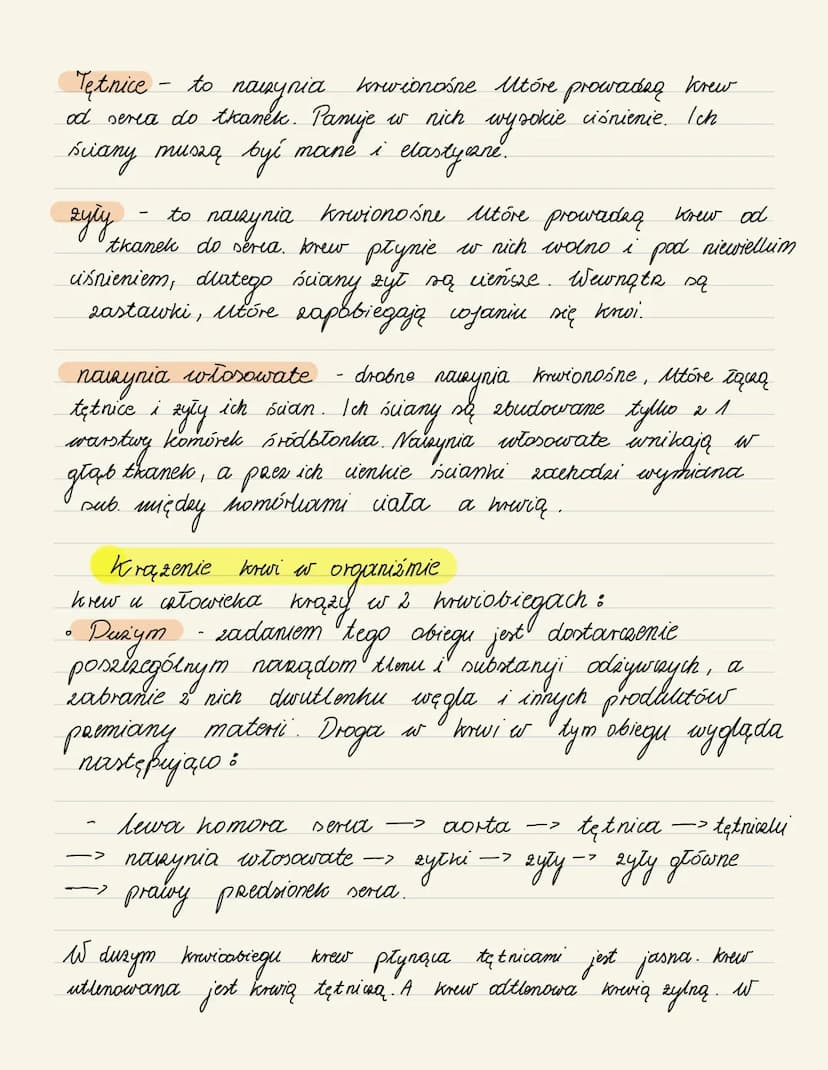 Tętnice - to naczynia krwionośne które prowadzą krew
od serca do tkanek. Panuje w nich wysokie ciśnienie. Ich
ściany muszą być mocne i elastyczne.
żyły - to naczynia krwionośne które prowadzą krew od
tkanek do serca. krew płynie w nich wolno i pod niewielkim
ciśnieniem, dlatego ściany żył są cieńsze. Wewnątrz są
zastawki, które zapobiegają cofaniu się krwi.
naczynia włosowate - drobne naczynia krwionośne, które łączą
tętnice i żyły ich ścian. Ich ściany są zbudowane tylko z 1
warstwy komórek śródbłonka. Naczynia włosowate wnikają w
głąb tkanek, a przez ich cienkie ścianki zachodzi wymiana
sub. między komórkami ciała a krwią.
Krążenie krwi w organiźmie
krew u człowieka krąży w 2 krwiobiegach:
• Dużym - zadaniem tego obiegu jest dostarczenie
poszczególnym narządom tlenu i substancji odżywczych, a
zabranie z nich dwutlenku węgla i innych produktów
przemiany materii. Droga w krwi w tym obiegu wygląda
następująco:
- lewa komora serca —> aorta —> tętnica —> tętniczki
—> naczynia włosowate —> żyłki —> żyły —> żyły główne
—> prawy przedsionek serca.
W dużym krwiobiegu krew płynąca tętnicami jest jasna. krew
utlenowana jest krwią tętniczą. A krew odtlenowa krwią żylną. W